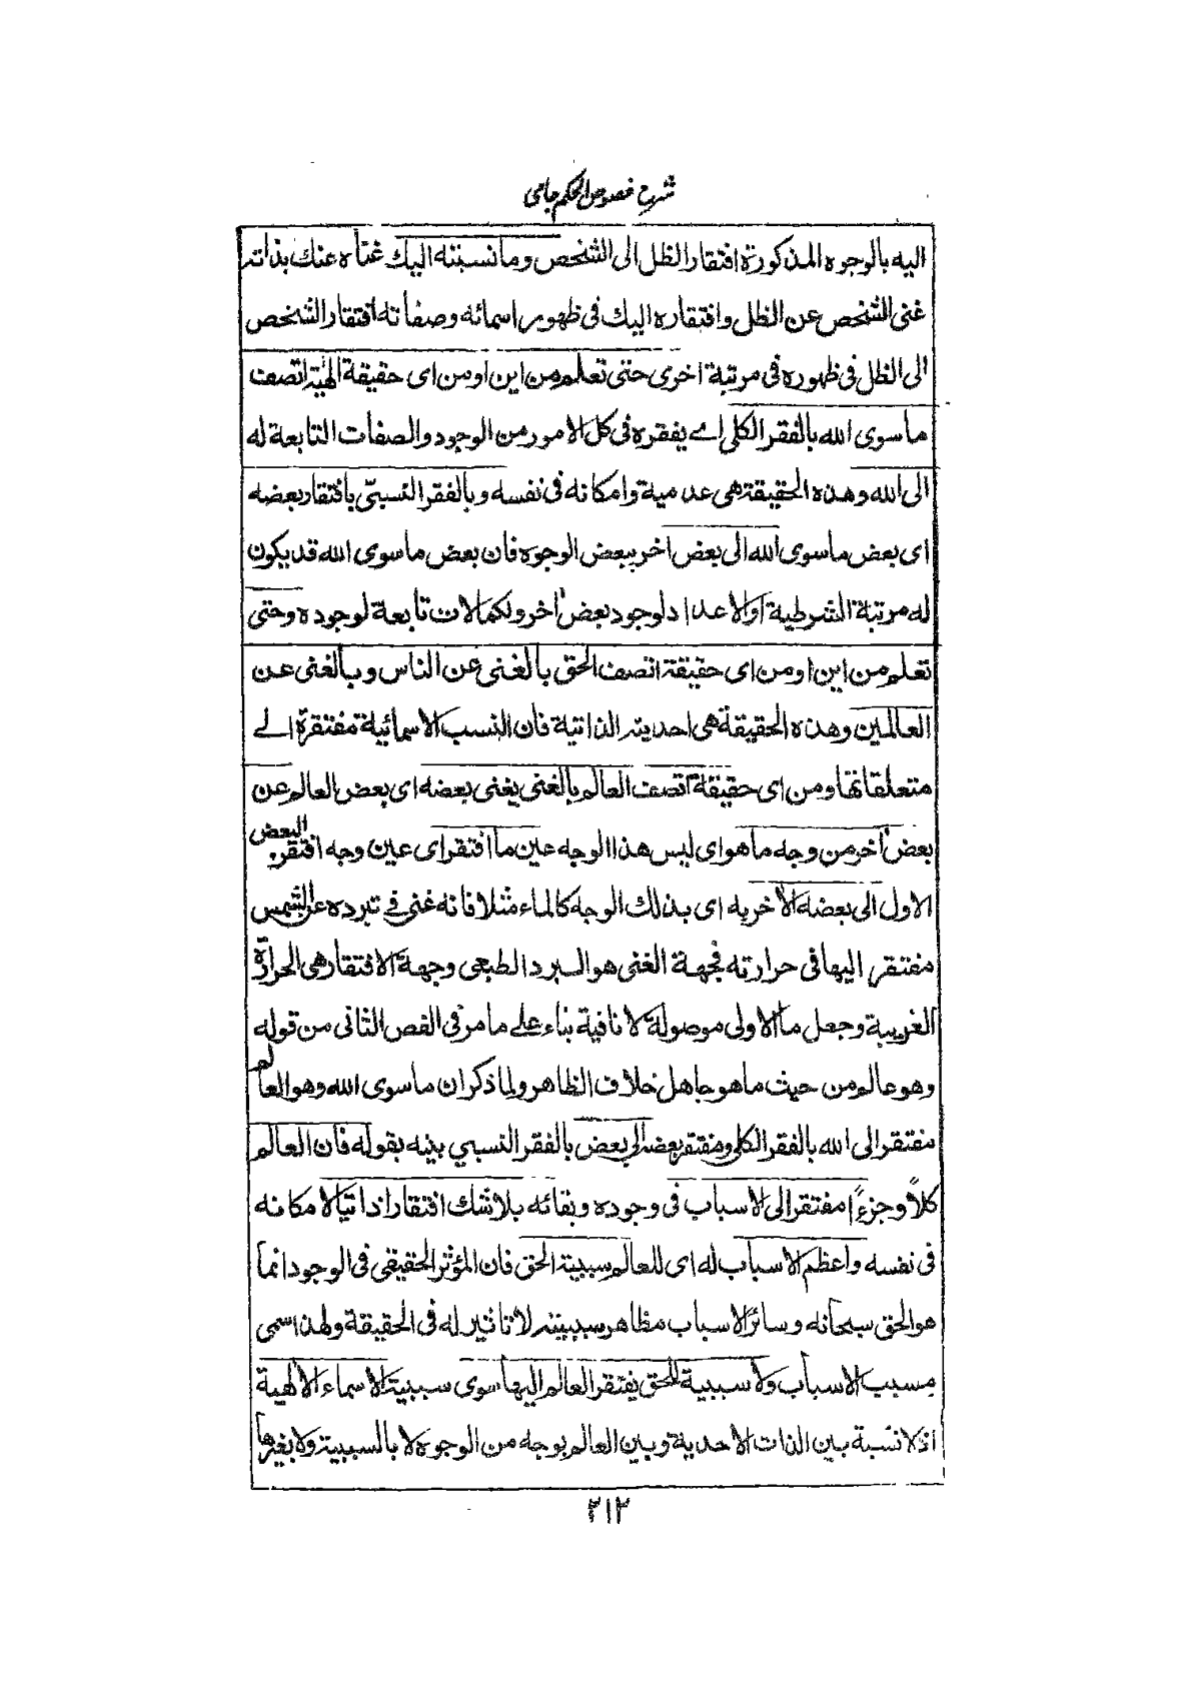 شرح فصوص الحكم جامی
اليه بالوجوه المذكورة افتقار الظل الى الشخص وما نسبته اليك غناه عنك بذاته
غنى الشخص عن الظل وافتقاره اليك فى ظهور اسمائه وصفاته افتقار الشخص
الى الظل فى ظهوره فى مرتبة اخرى حتى تعلم من اين او من اى حقيقة الهية اتصف
ما سوى الله بالفقر الكلى اے يفقره فى كل الامور من الوجود والصفات التابعة له
الى الله وهذه الحقيقة هى عدمية وامكانه فى نفسه وبالفقر النسبىّ بافتقار بعضه
اى بعض ما سوى الله الى بعض اخر ببعض الوجوه فان بعض ما سوى الله قد يكون
له مرتبة الشرطية او الاعداد لوجود بعض اخر ولكمالات تابعة لوجوده وحتى
تعلم من اين او من اى حقيقة اتصف الحق بالغنى عن الناس وبالغنى عن
العالمين وهذه الحقيقة هى احديته الذاتية فان النسب الاسمائية مفتقرة الے
متعلقاتها ومن اى حقيقة اتصف العالم بالغنى يغنى بعضه اى بعض العالم عن
بعض اخر من وجه ما هو اى ليس هذا الوجه عين ما افتقر اى عين وجه افتقر البعض
الاول الى بعضه الاخر به اى بذلك الوجه كالماء مثلا فانه غنى فے تبرده عن الشمس
مفتقر اليها فى حرارته فجهة الغنى هو البرد الطبعى وجهة الافتقار هى الحرارة
الغريبة وجعل ما الاولى موصولة لا نافية بناء على ما مر فى الفص الثانى من قوله
وهو عالم من حيث ما هو جاهل خلاف الظاهر ولما ذكر ان ما سوى الله وهو العالم
مفتقر الى الله بالفقر الكلى ومفتقر بعضه الى بعض بالفقر النسبي بينه بقوله فان العالم
كلاً وجزءاً مفتقر الى الاسباب فى وجوده وبقائه بلا شك افتقارا ذاتيا لامكانه
فى نفسه واعظم الاسباب له اى للعالم سببية الحق فان المؤثر الحقيقى فى الوجود انما
هو الحق سبحانه وسائر الاسباب مظاهر سببيته لا تاثير له فى الحقيقة ولهذا سمى
مسبب الاسباب ولا سببية للحق يفتقر العالم اليها سوى سببية الاسماء الالهية
اذ لا نسبة بين الذات الاحدية وبين العالم بوجه من الوجوه لا بالسببية ولا بغيرها
٢١٢